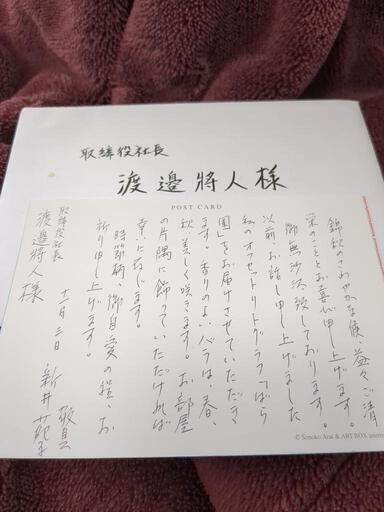 取締役社長
渡邉將人様
POST CARD
錦秋のさわやかな候、益々ご清
栄のこととお喜び申し上げます。
御無沙汰致しております。
以前、お話し申し上げました
私のオフセットリトグラフ「ばら
園」をお届けさせていただき
ます。香りのよいバラは、春、
秋、美しく咲きます。お部屋
の片隅に飾っていただければ
幸いに存じます。
時節柄、御自愛の程、お
祈り申し上げます。
敬具
十一月三日
新井苑子
取締役社長
渡邉將人様
© Sonoko Arai & ART BOX